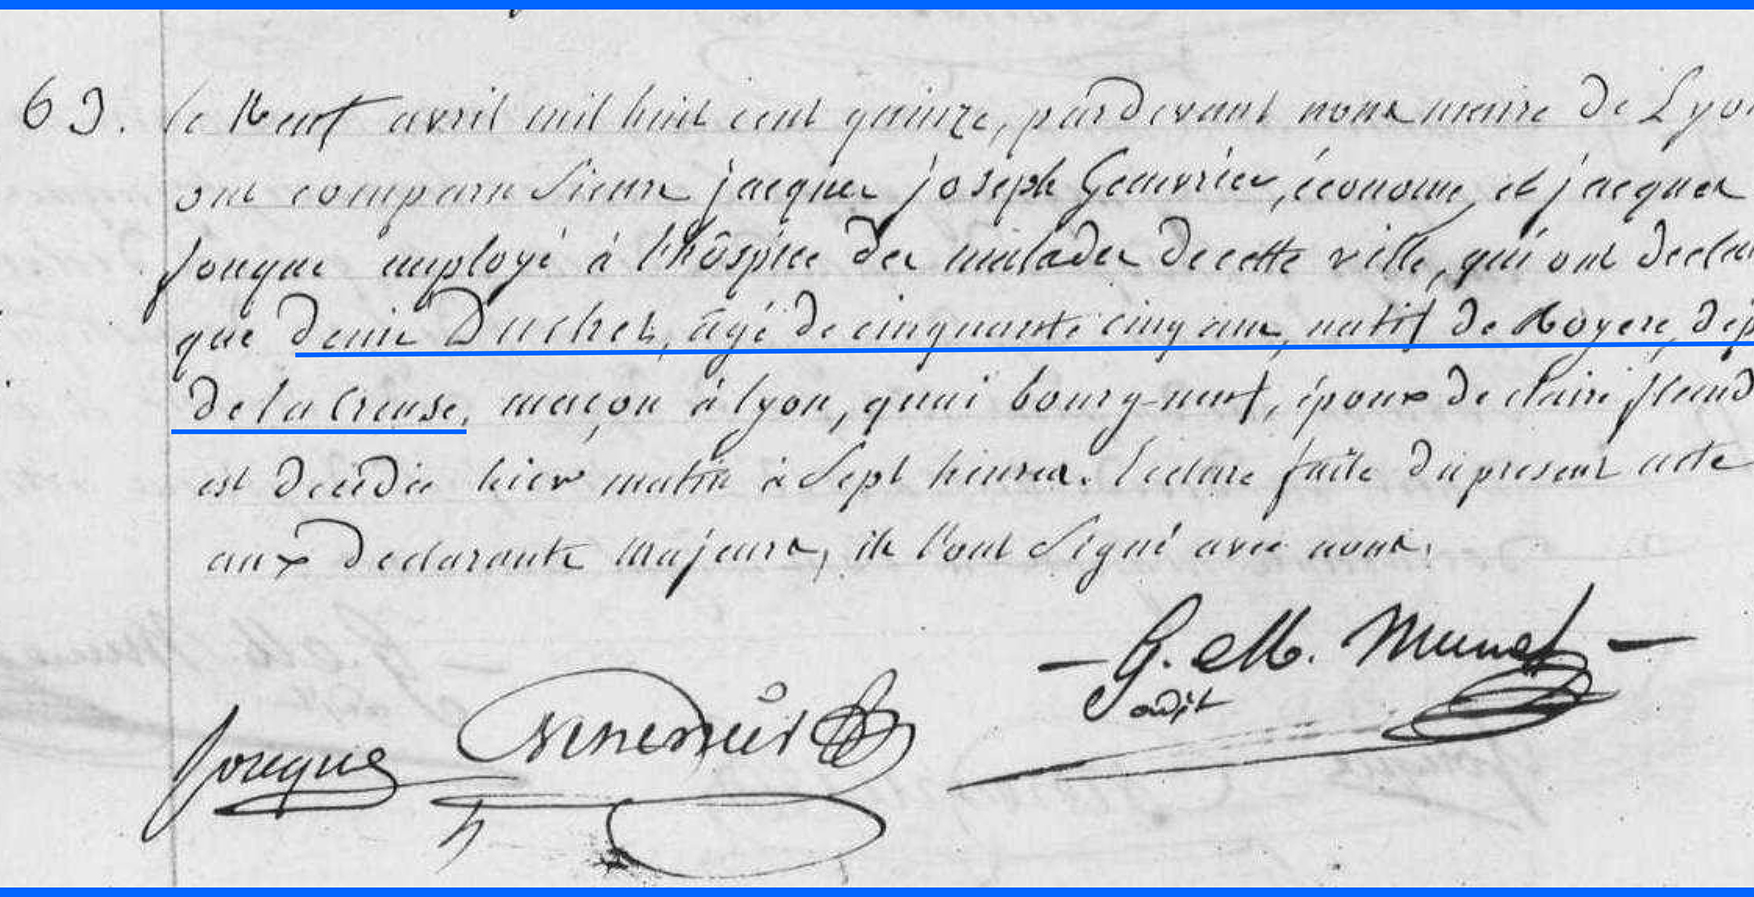 63. le Neuf avril mil huit cent quinze, pardevant nous maire de Lyon
ont comparu Sieurs jacques joseph Genevrier, économe, et jacques
Jouque employé à l'hôspice des malades de cette ville, qui ont declar
que denis Duchet, âgé de cinquante cinq ans, natif de Royere, dép
de la Creuse, maçon à lyon, quai bourg-neuf, époux de claire
est decédé hier matin à Sept heures. Lecture faite du present acte
aux declarants majeurs, ils l'ont Signé avec nous.
G. M. Munet
adjt
Jouque Genevrier